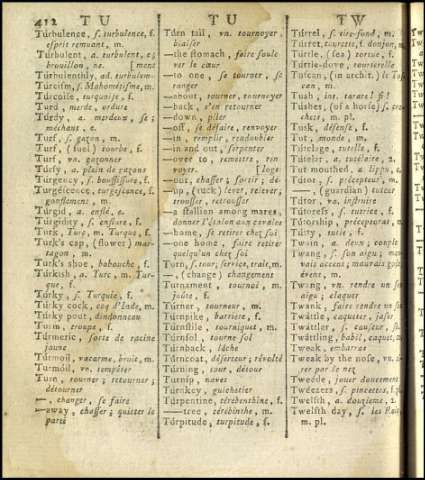 412 T U T U T W
Túrbulence, s. turbulence, f.
esprit remuant, m.
Túrbulent, a. turbulent, e;
brouillon, ne. [ment
Túrbulenthly, ad. turbulem-
Túrcism, s. Mahométisme, m.
Túrcoise, turquoise, f.
Turd, merde, ordure
Túrdy, a. merdeux, se;
méchant, e.
Turf, s. gazon, m.
Turf, (fuel) tourbe, f.
Turf, vn. gazonner
Túrfy, a. plein de gazons
Túrgency, s. bouffissure, f.
Turgéscence, turgescence, f.
gonflement, m.
Túrgid, a. enflé, e.
Turgidity, s. enflure, f.
Turk, Turc, m. Turque, f.
Turk's cap, (flower) mar-
tagon, m.
Turk's shoe, babouche, f.
Túrkish, a. Turc, m. Tur-
que, f.
Túrky, s. Turquie, f.
Túrky cock, coq d'Inde, m.
Túrky pout, dindonneau
Turm, troupe, f.
Túrmeric, sorte de racine
jaune
Túrmoil, vacarme, bruit, m.
Turmóil, vn. tempêter
Turn, tourner; retourner;
détourner
—, changer, se faire
—away, chasser; quitter le
parti
Turn tail, vn. tournoyer,
biaiser
—the stomach, faire soule-
ver le cœur
—to one, se tourner, se
ranger
—about, tourner, tournoyer
—back, s'en retourner
—down, plier
—off, se défaire, renvoyer
—in, remplir, redoubler
—in and out, serpenter
—over to, remettre, ren-
voyer. [loge
—out, chasser; sortir; dé-
—up, (tuck) lever, relever;
trousser, retrousser
—a stallion among mares,
donner l'étalon aux cavales
—home, se retirer chez soi
—one home, faire retirer
quelqu'un chez soi
Turn, s. tour; service, trait, m.
—, (change) changement
Túrnament, tournoi, m.
joûte, f.
Túrner, tourneur, m.
Túrnpike, barriere, f.
Túrnstile, tourniquet, m.
Túrnsol, tourne sol
Túrnback, lâche
Túrncoat, déserteur; révolté
Túrning, tour, détour
Túrnip, navet
Túrnkey, guichetier
Túrpentine, térébenthine, f.
—tree, térébinthe, m.
Túrpitude, turpitude, f.
Túrrel, s. tire-fond, m.
Túrret, tourette, f. donjon, m.
Túrtle, (sea) tortue, f.
Túrtle-dove, tourterelle
Túscan, (in archit.) le Tos-
can, m.
Tush, int. tarare! fi!
Túshes, (of a horse) s. cro-
chets, m. pl.
Tusk, défense, f.
Tut, monde, m.
Tútelage, tutelle, f.
Tútelar, a. tutélaire, 2.
Tut mouthed, a. lippu, e.
Tútor, s. précepteur, m.
—, (guardian) tuteur
Tútor, va. instruire
Tútoress, s. tutrice, f.
Tútorship, préceptorat, m.
Tútty, tutie, f.
Twain, a. deux; couple
Twang, s. son aigu; mau-
vais accent; mauvais goût,
évent, m.
Twang, vn. rendre un son
aigu; claquer
Twank, faire rendre un son
Twáttle, caqueter, jaser
Twáttler, s. causeur, se
Twáttling, babil, caquet, m.
Tweak, embarras
Tweak by the nose, vn. ti-
rer par le nez
Tweedle, jouer doucement
Tweezers, s. pincettes, f.
Twelfth, a. douzieme, 2.
Twelfth day, s. les Rois,
m. pl.